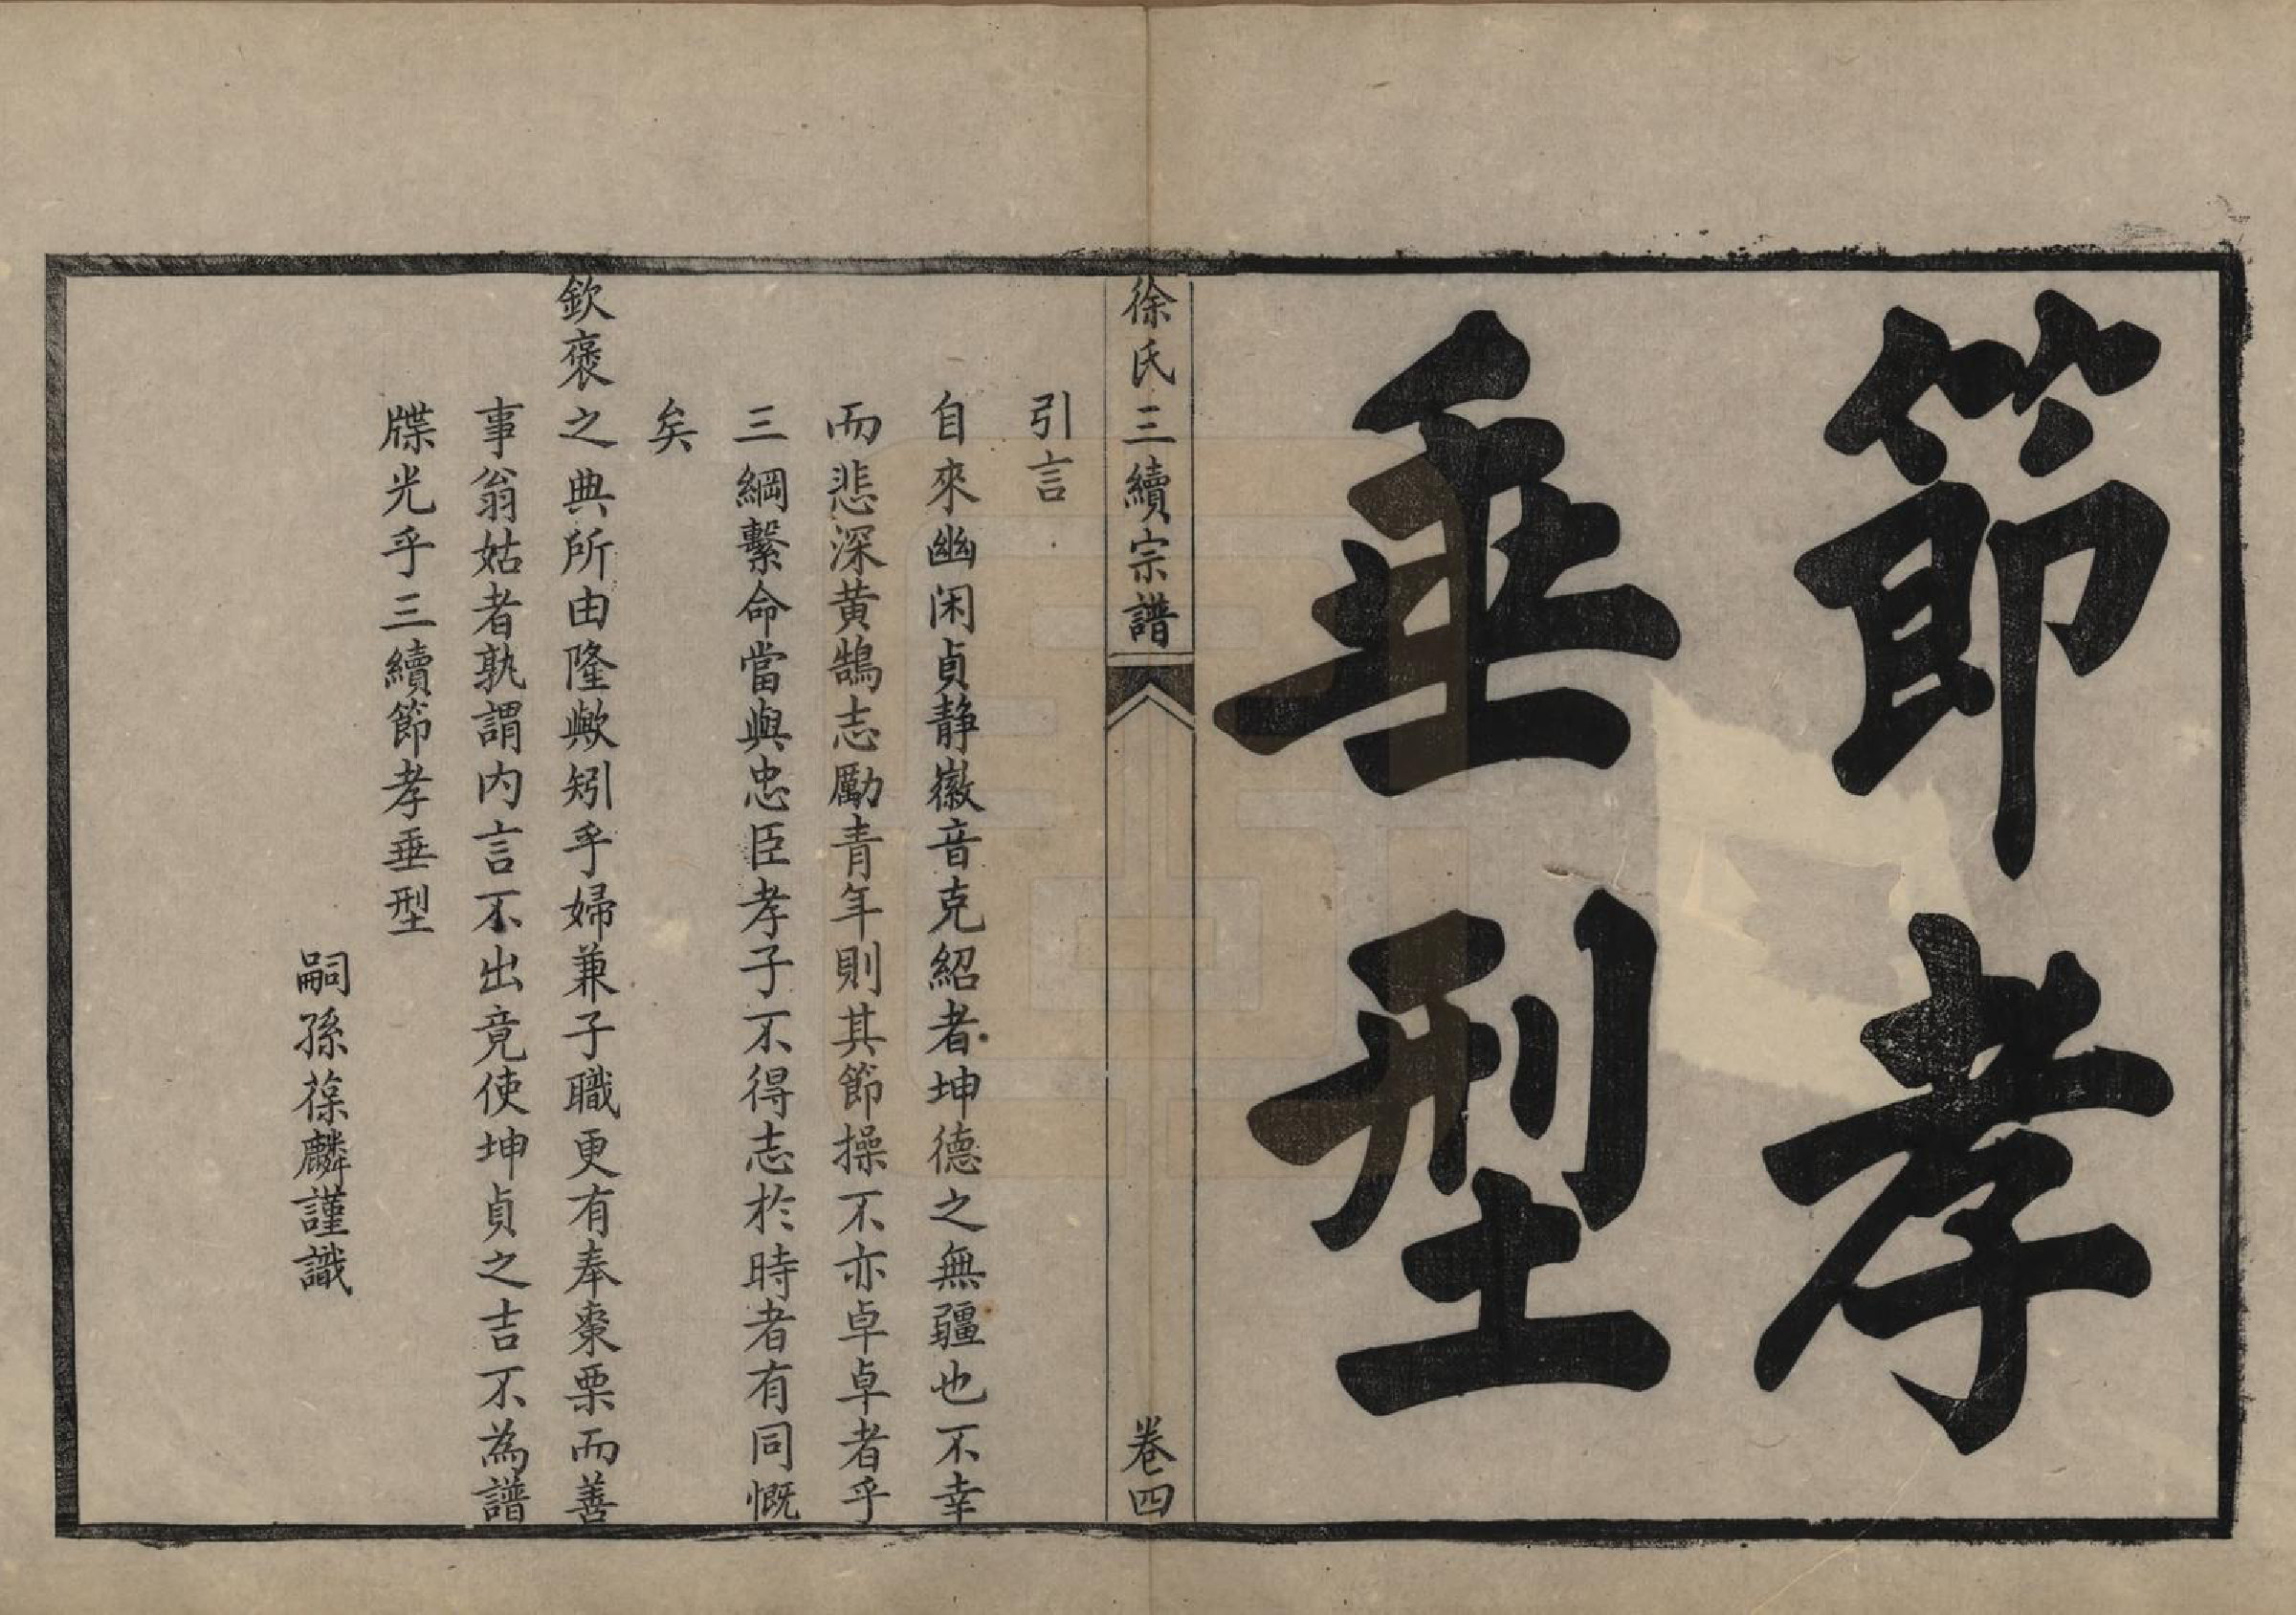 節孝
垂型
徐氏三續宗譜
卷四
引言
自來幽闲貞静徽音克紹者坤德之無疆也不幸
而悲深黄鵠志勵青年則其節操不亦卓卓者乎
三綱繫命當與忠臣孝子不得志於時者有同慨
矣
欽褒之典所由隆歟矧乎婦兼子職更有奉棗栗而善
事翁姑者孰謂内言不出竟使坤貞之吉不為譜
牒光乎三續節孝垂型
嗣孫葆麟謹識